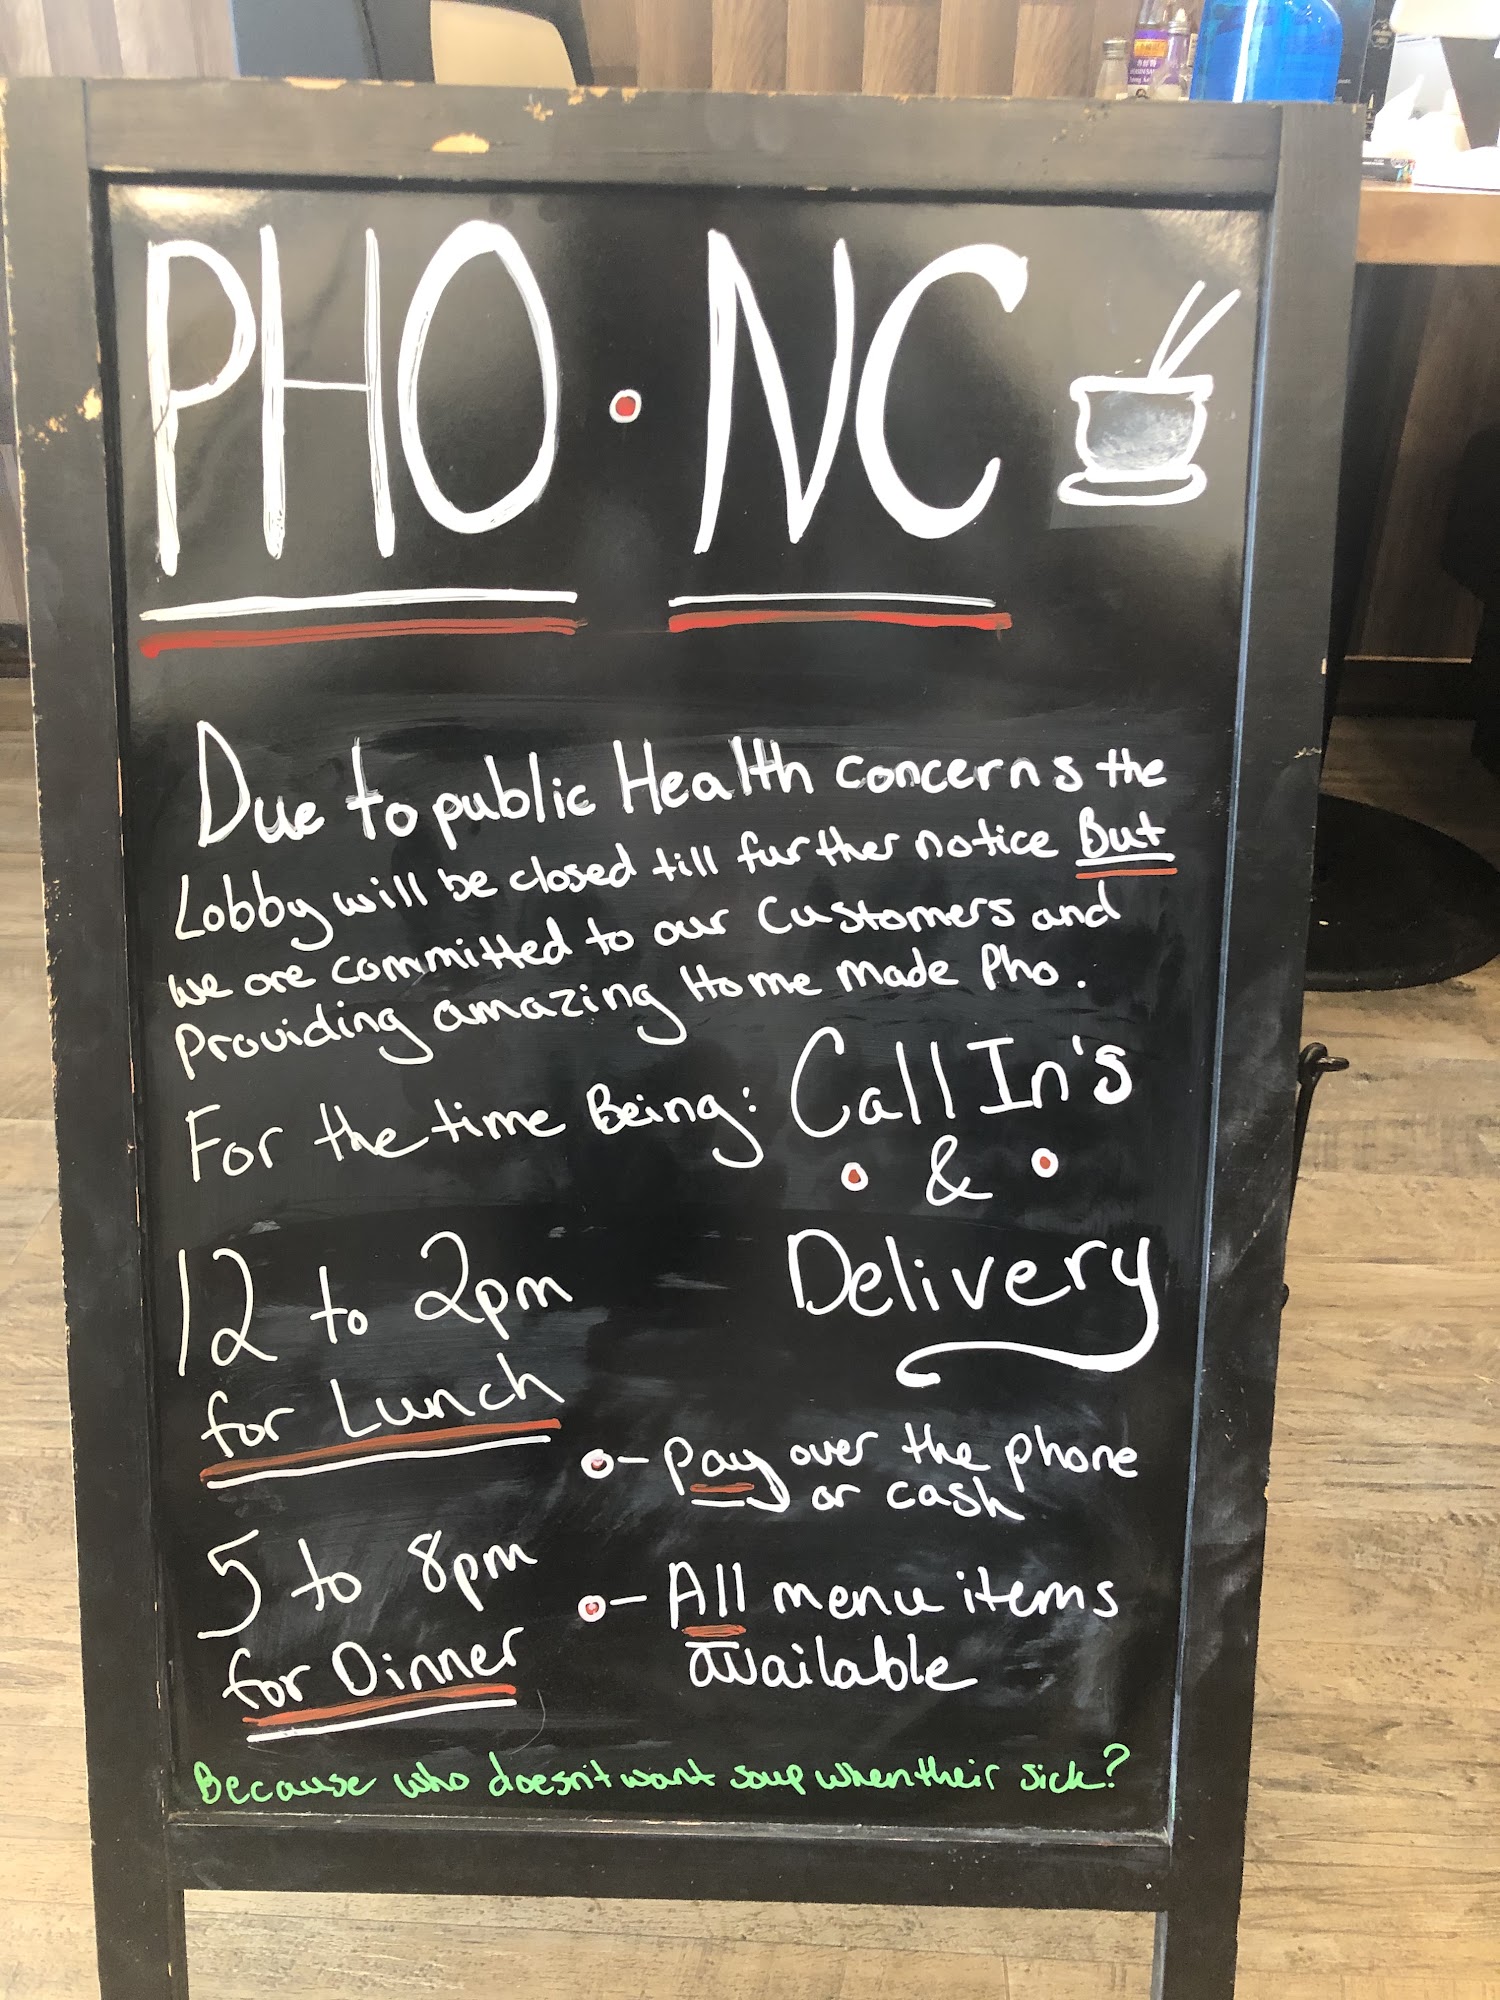 PHO • NC
Due to public Health concerns the
Lobby will be closed till further notice But
we are committed to our Customers and
Providing amazing Home Made Pho.
For the time Being: Call In's
&
Delivery
12 to 2pm
for Lunch
5 to 8pm
for Dinner
- Pay over the phone
or cash
- All menu items
available
Because who doesn't want soup when their sick?